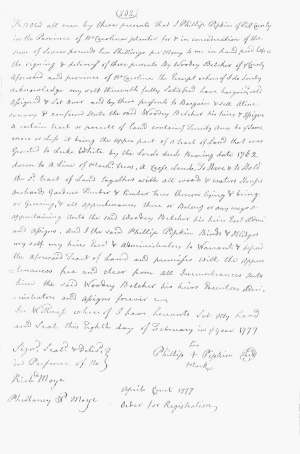 (102)
To all men by these presents that I Phillip Pipkin of Pitt County
in the Province of No Carolina planter for & in consideration of the
sum of Seven pounds ten Shillings pr Money to me in hand paid before
the signing & delivery of these presents By Woodey Belcher of County
aforesaid and province of No Carolina the Receipt whereof I do hereby
Acknowledge my self therewith fully Satisfied have bargained
Assigned & Set over and by these presents do Bargain & Sell Alien
convey & confirm Unto the said Woodey Belcher his heirs & assigns
A certain tract or parcell of Land containing Seventy five Acres
more or less it being the upper part of a tract of Land that was
Granted to Luke White by the Lords deed bearing date 1762
To Have & to Hold
the Sd tract of Land together with all woods & waters
orchards Gardens Timber & timber trees thereon lying & being
or Growing, & all appurtenances there or belong or any ways
appertaining unto the said Woodey Belcher his heirs
and assigns, And I the said Phillip Pipkin Binds & obliges
my self my heirs & administrators to Warrant & defend
the aforesaid tract of Land and premises with the appur-
tenances free and clear from all Incumbrances unto
him the said Woodey Belcher his heirs Executors Admi-
nistrators and assigns forever
In Witness whereof I have hereunto Set My hand
and Seal this Eighth day of February in ye year 1777
Signd, Seald & Deliverd
in Presence of Us
his
Phillip + Pipkin
Mark
Richd Moye
Moye
April Court 1777
Order for Registration